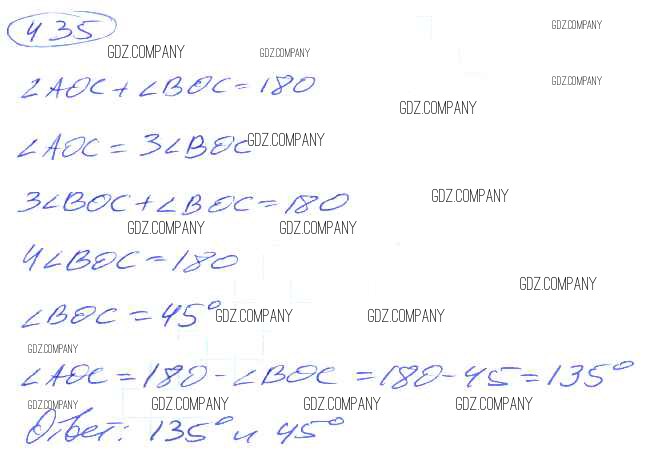 435
GDZ.COMPANY
GDZ.COMPANY GDZ.COMPANY
∠AOC + ∠BOC = 180
GDZ.COMPANY
GDZ.COMPANY
∠AOC = 3∠BOC
GDZ.COMPANY
3∠BOC + ∠BOC = 180
GDZ.COMPANY
GDZ.COMPANY GDZ.COMPANY
4∠BOC = 180
GDZ.COMPANY
∠BOC = 45°
GDZ.COMPANY GDZ.COMPANY
GDZ.COMPANY
∠AOC = 180 - ∠BOC = 180 - 45 = 135°
GDZ.COMPANY GDZ.COMPANY GDZ.COMPANY GDZ.COMPANY
Ответ: 135° и 45°